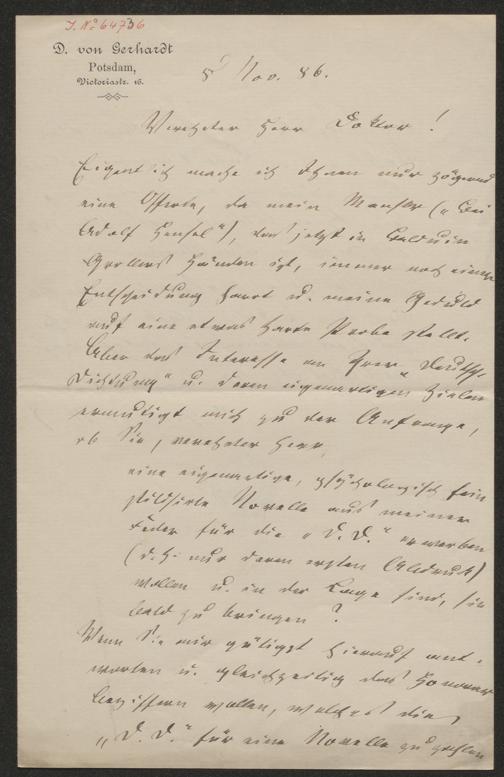 J. No 64736
D. von Gerhardt
Potsdam,
Victoriastr. 16.
8 Nov. 86.
Verehrter Herr Doktor!
Eigentlich mache ich Ihnen nur zögernd
eine Offerte, da mein Manskr („Bei
Adolf Hensel“), das jetzt in Balduin
Grollers Händen ist, immer noch einer
Entscheidung harrt u. meine Geduld
auf eine etwas harte Probe stellt.
Aber das Interesse an Ihrer „Deutsch.
Dichtung“ u. deren eigenartigen Zielen
ermutigt mich zu der Anfrage,
ob Sie, verehrter Herr,
eine eigenartige, psychologisch fein
stilisirte Novelle aus meiner
Feder für die „D. D.“ erwerben
(d. h. nur deren ersten Abdruck)
wollen u. in der Lage sind, sie
bald zu bringen?
Wenn Sie mir gütigst hierauf ant-
worten u. gleichzeitig das Honorar
beziffern wollen, welches die
„D. D.“ für eine Novelle zu zahlen